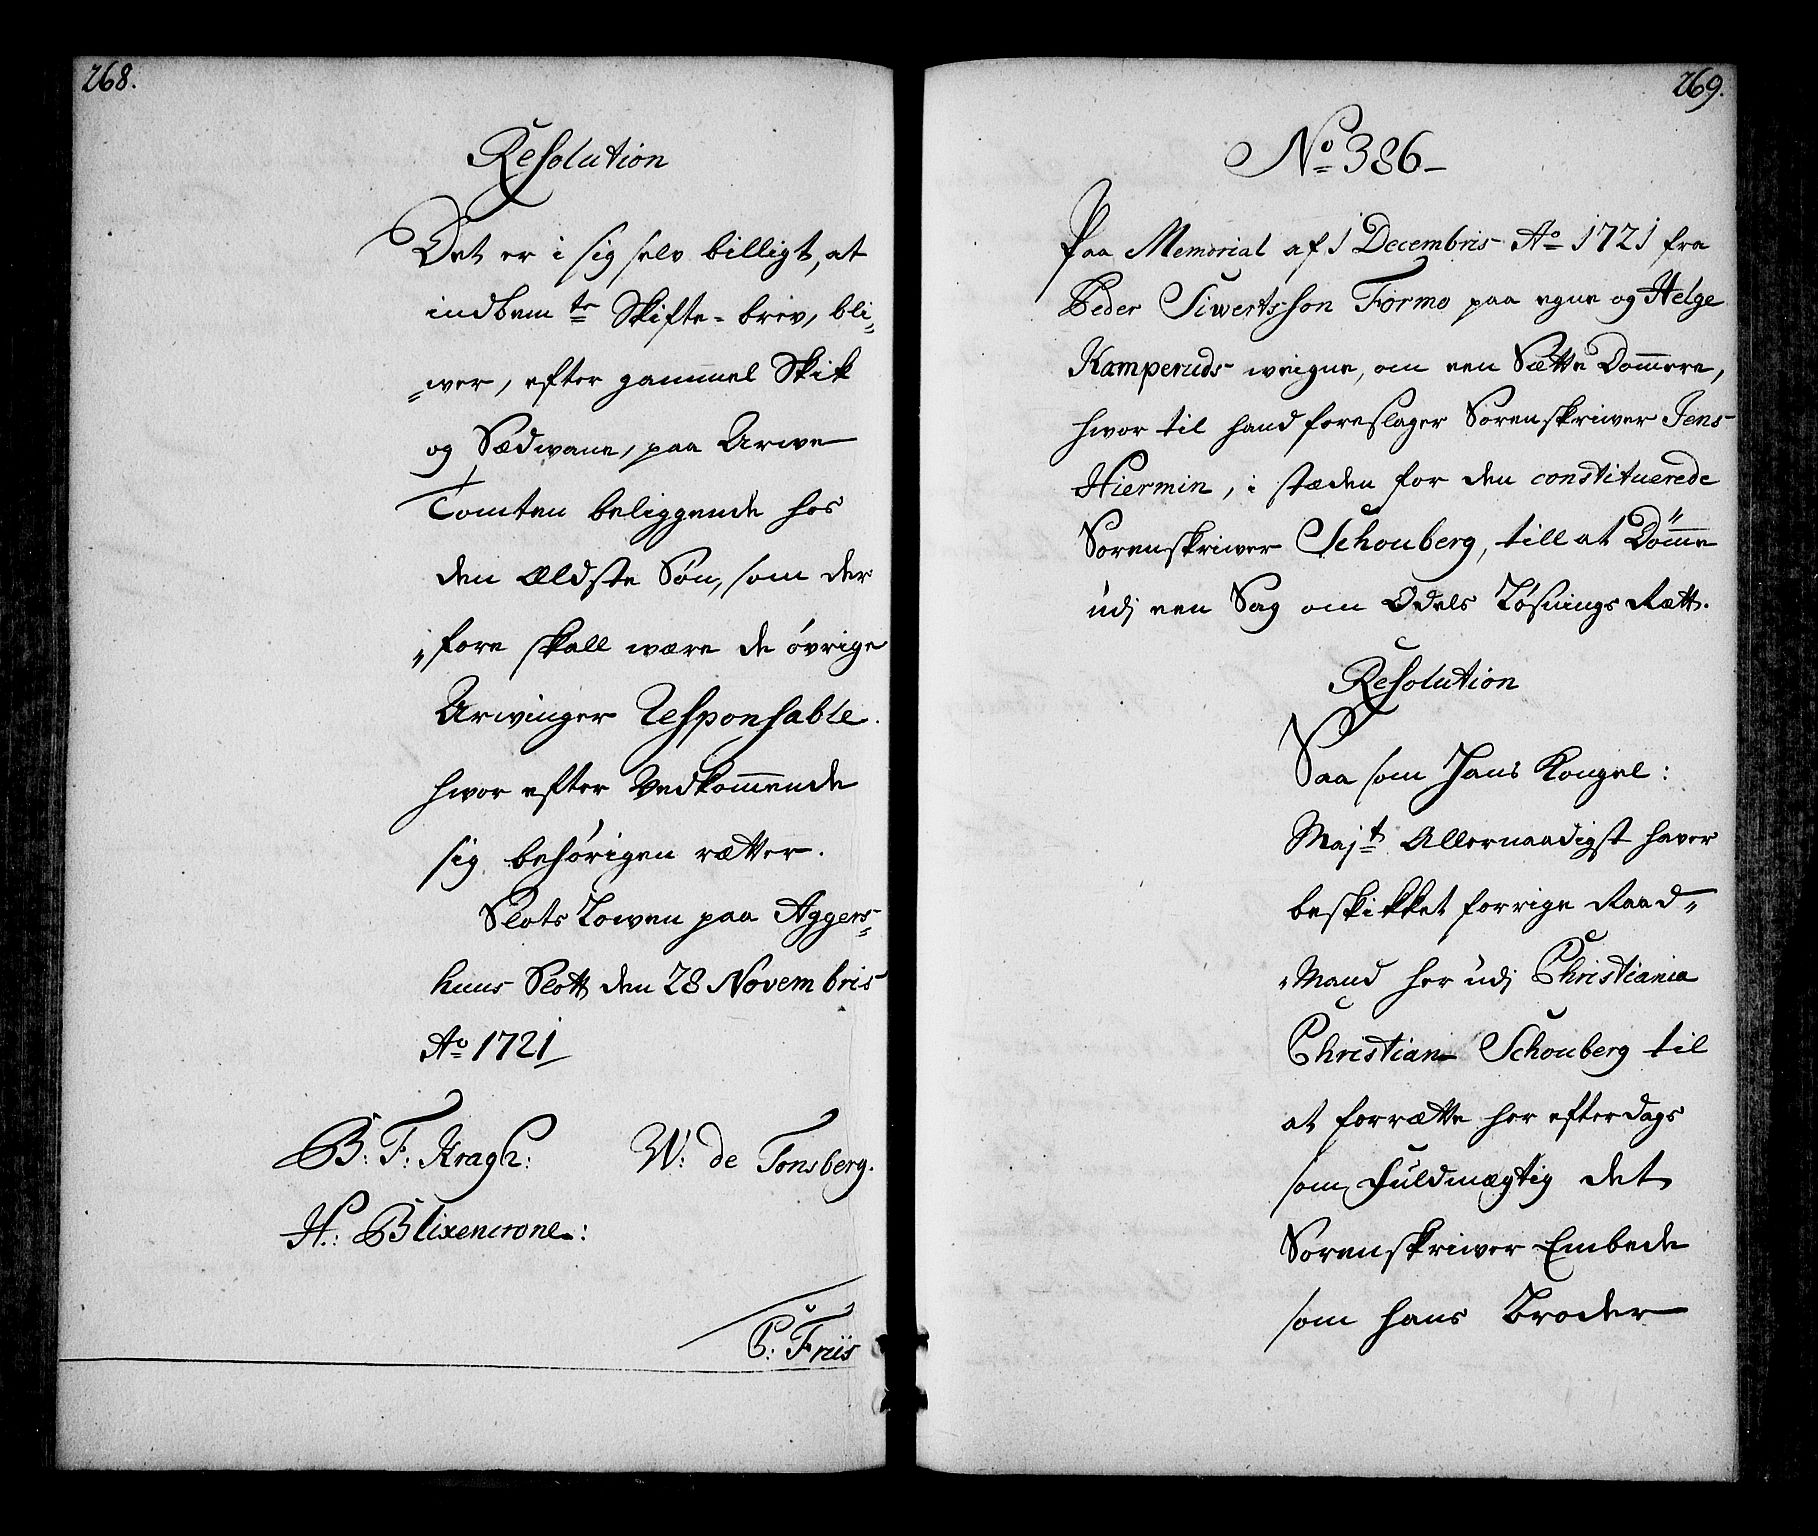 268.
Resolution
Det er i sig selv billigt, at
indbem.te Skifte-brev, bli„
„wer, efter gammel Skik
og Sædwane, paa Arwe
Tomten beliggende hos
den Ældste Søn, som der
„fore skall wære de øvrige
Arwinger Responsable.
hwor efter Vedkommende
sig behørigen rætter.
Slots Lowen paa Aggers„
huus Slott den 28 Novembris
Ao 1721
B: F: Kragh: W: de Tonsberg.
H: Blixencrone:
P: Friis
269.
No 386
Paa Memorial af 1 Decembris Ao 1721 fra
Peder Siwertsson Formo paa egne og Helge
Kamperuds weigne, om een Sætte Dommere,
hwor til hand foreslager Sorenskriwer Jens
Hiermin, i stæden for den constituerede
Sorenskriwer Schouberg, till at Dømme
udj een Sag om Odels Løsnings Rætt.
Resolution
Saa som Hans Kongel:
Maj.t Allernaadigst haver
beskikket forrige Raad„
„Mand her udj Christiania
Christian Schouberg til
at forrætte her efterdags
som Fuldmægtig det
Sorenskriwer Embede
som hans Broder